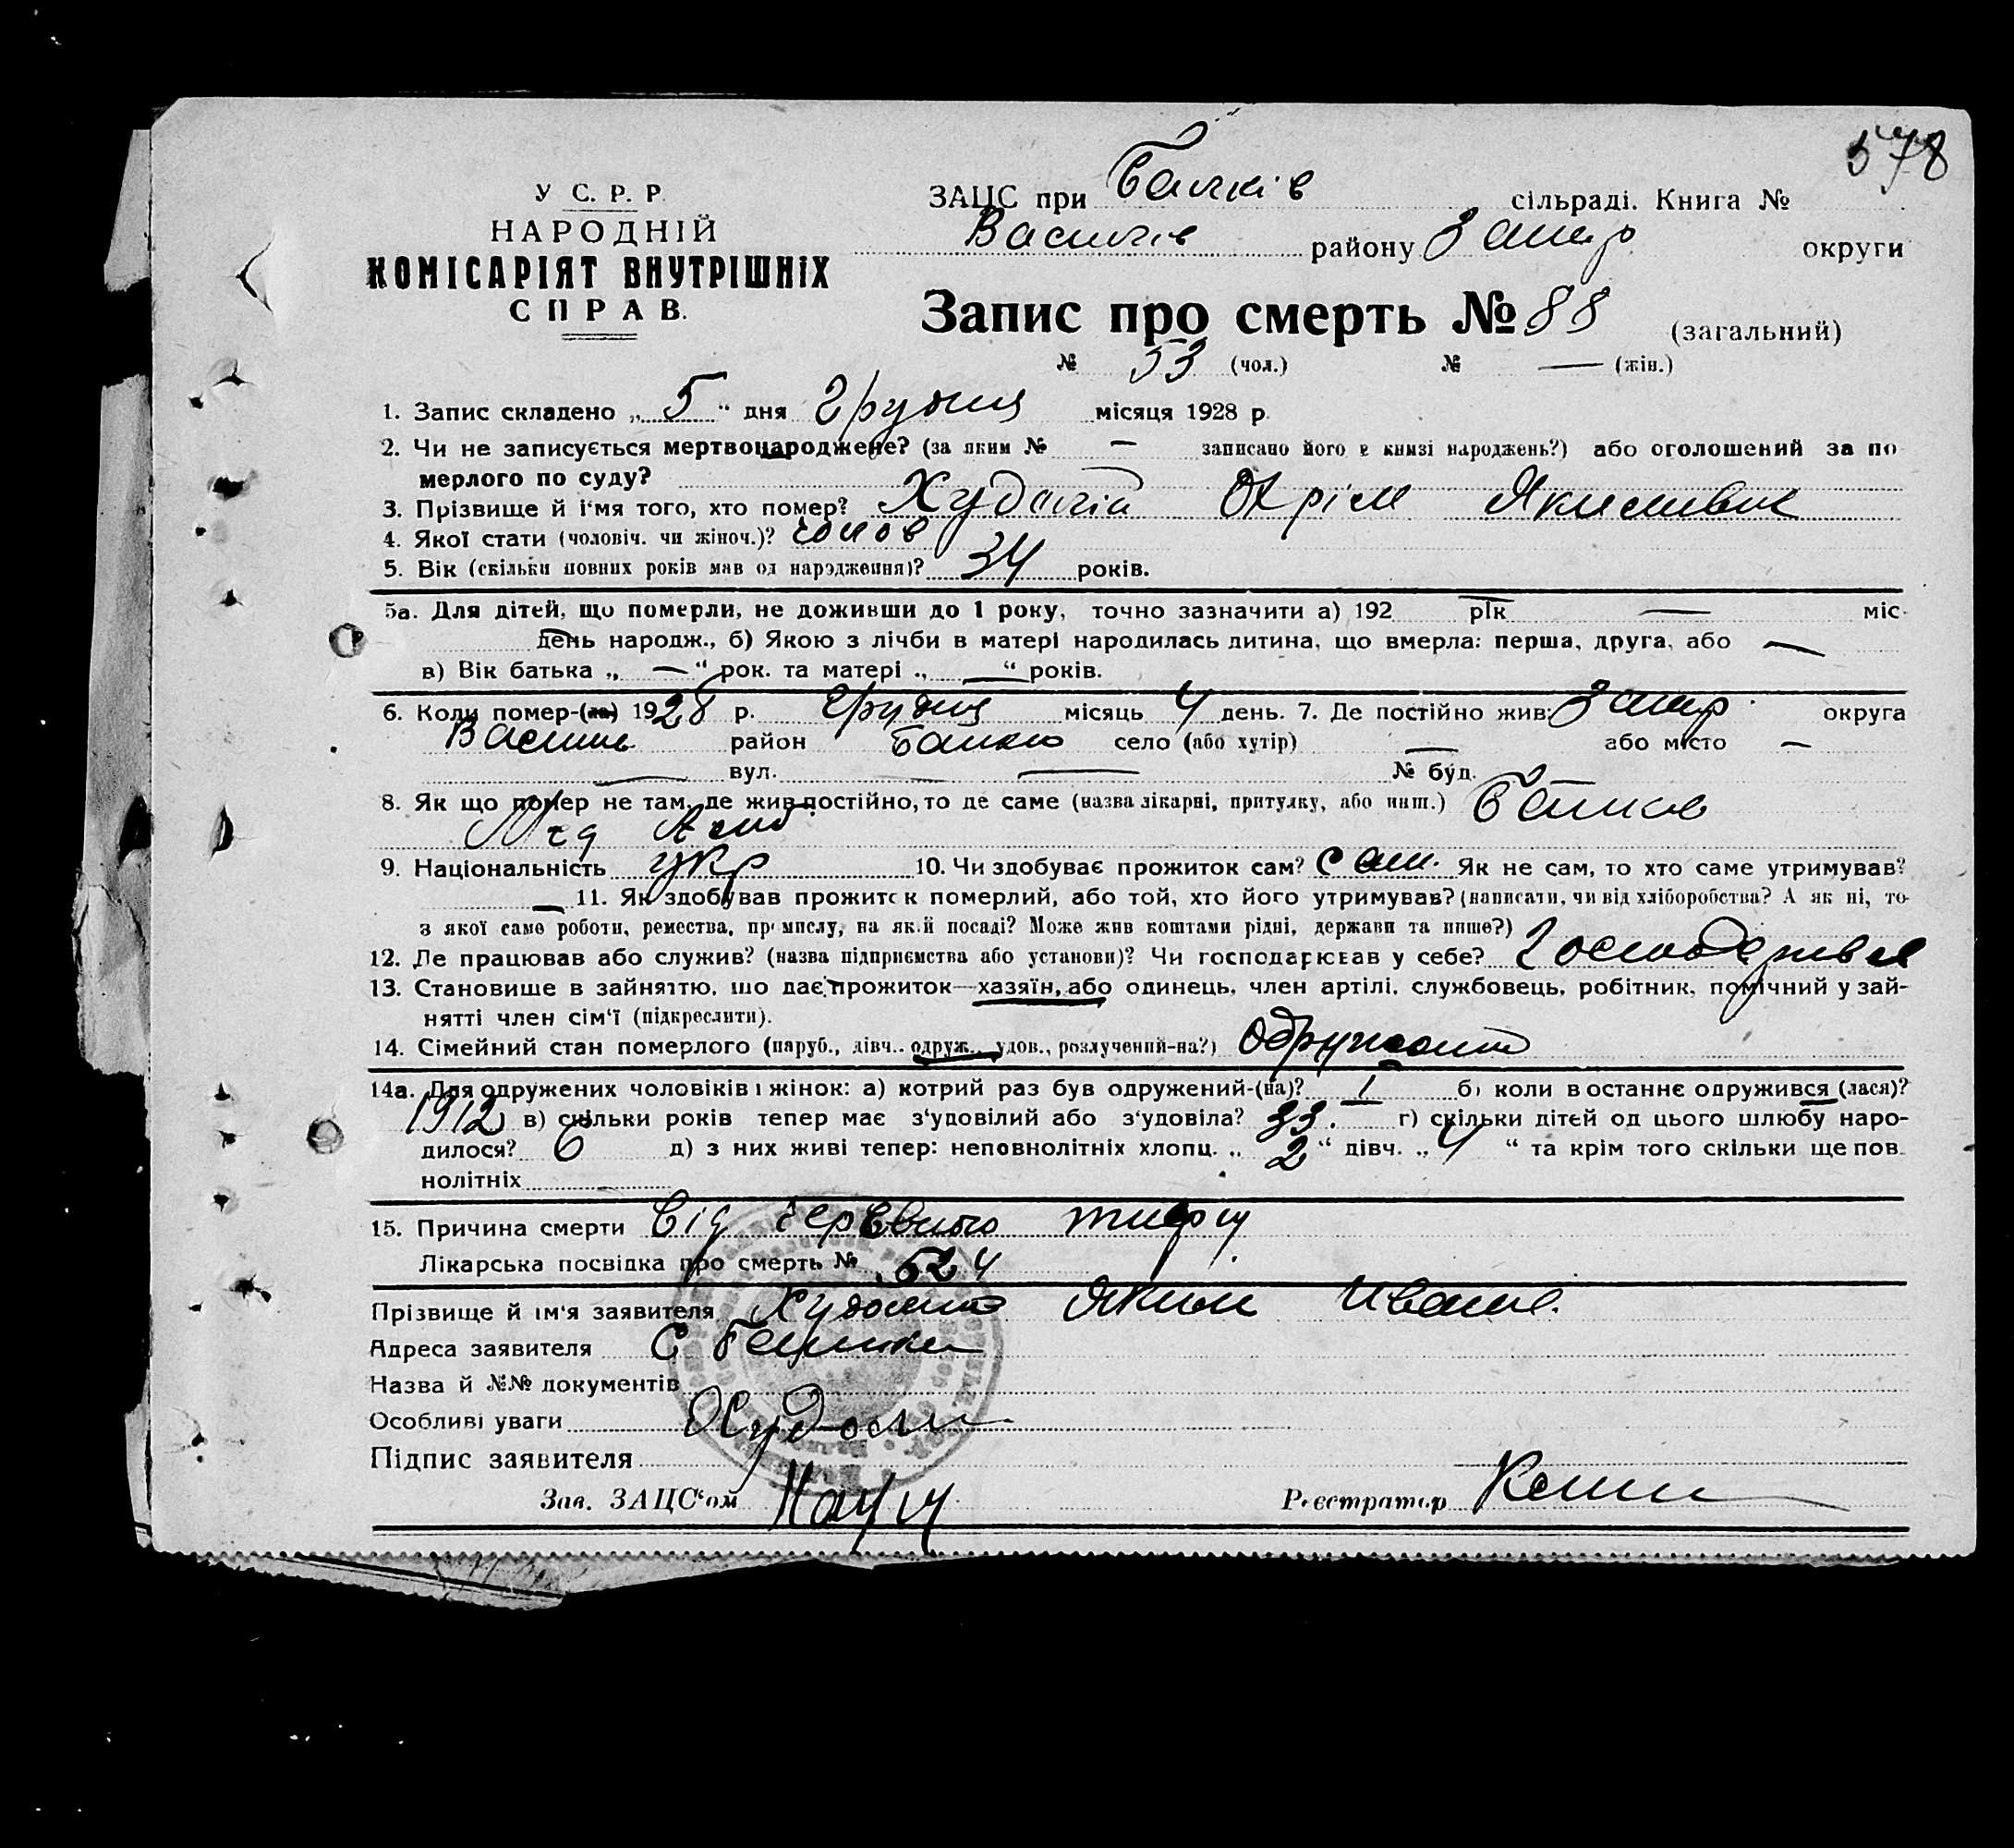 578
У С. Р. Р.
НАРОДНІЙ
КОМІСАРІЯТ ВНУТРІШНІХ
СПРАВ.
ЗАЦС при Балків сільраді. Книга №
Василів району Запор округи
Запис про смерть № 88 (загальний)
№ 53 (чол.) № — (жін.)
1. Запис складено „ 5 “ дня Грудня місяця 1928 р.
2. Чи не записується мертвонароджене? (за яким № — записано його в книзі народжень?) або оголошений за по
мерлого по суду?
3. Прізвище й і'мя того, хто помер? Худолій Охрім Якимович
4. Якої стати (чоловіч. чи жіноч.)? чолов
5. Вік (скільки повних років мав од народження)? 34 років.
5а. Для дітей, що померли, не доживши до 1 року, точно зазначити а) 192 рік — міс.
день народж., б) Якою з лічби в матері народилась дитина, що вмерла: перша, друга, або —
в) Вік батька „ — “ рок. та матері „ — “ років.
6. Коли помер-(ла) 1928 р. Грудня місяць 4 день. 7. Де постійно жив: Запор. округа
Василів район Балков село (або хутір) — або місто —
— вул. — № буд.
8. Як що помер не там, де жив постійно, то де саме (назва лікарні, притулку, або инш.) Балков
9. Національність укр 10. Чи здобуває прожиток сам? сам. Як не сам, то хто саме утримував?
— 11. Як здобував прожиток померлий, або той, хто його утримував? (написати, чи від хліборобства? А як ні, то
з якої саме роботи, ремества, промислу, на якій посаді? Може жив коштами рідні, держави та инше?)
12. Де працював або служив? (назва підприємства або установи)? Чи господарював у себе?
13. Становище в зайняттю, що дає прожиток—хазяїн, або одинець, член артілі, службовець, робітник, помічний у зай-
нятті член сім'ї (підкреслити).
14. Сімейний стан померлого (паруб., дівч., одруж., удов., розлучений-на?) Одружоний
14а. Для одружених чоловіків і жінок: а) котрий раз був одружений-(на)? 1 б) коли в останнє одружився (лася)?
1912 в) скільки років тепер має з'удовілий або з'удовіла? 33. г) скільки дітей од цього шлюбу наро-
дилося? 6 д) з них живі тепер: неповнолітніх хлопц. „ 2 “ дівч. „ 4 “ та крім того скільки ще пов.
нолітніх
15. Причина смерти Від черевного тифу
Лікарська посвідка про смерть № 524
Прізвище й ім'я заявителя Худолій Яким Иванов.
Адреса заявителя С Балки
Назва й №№ документів
Особливі уваги
Підпис заявителя Худоли
Зав. ЗАЦС'ом
Реєстратор